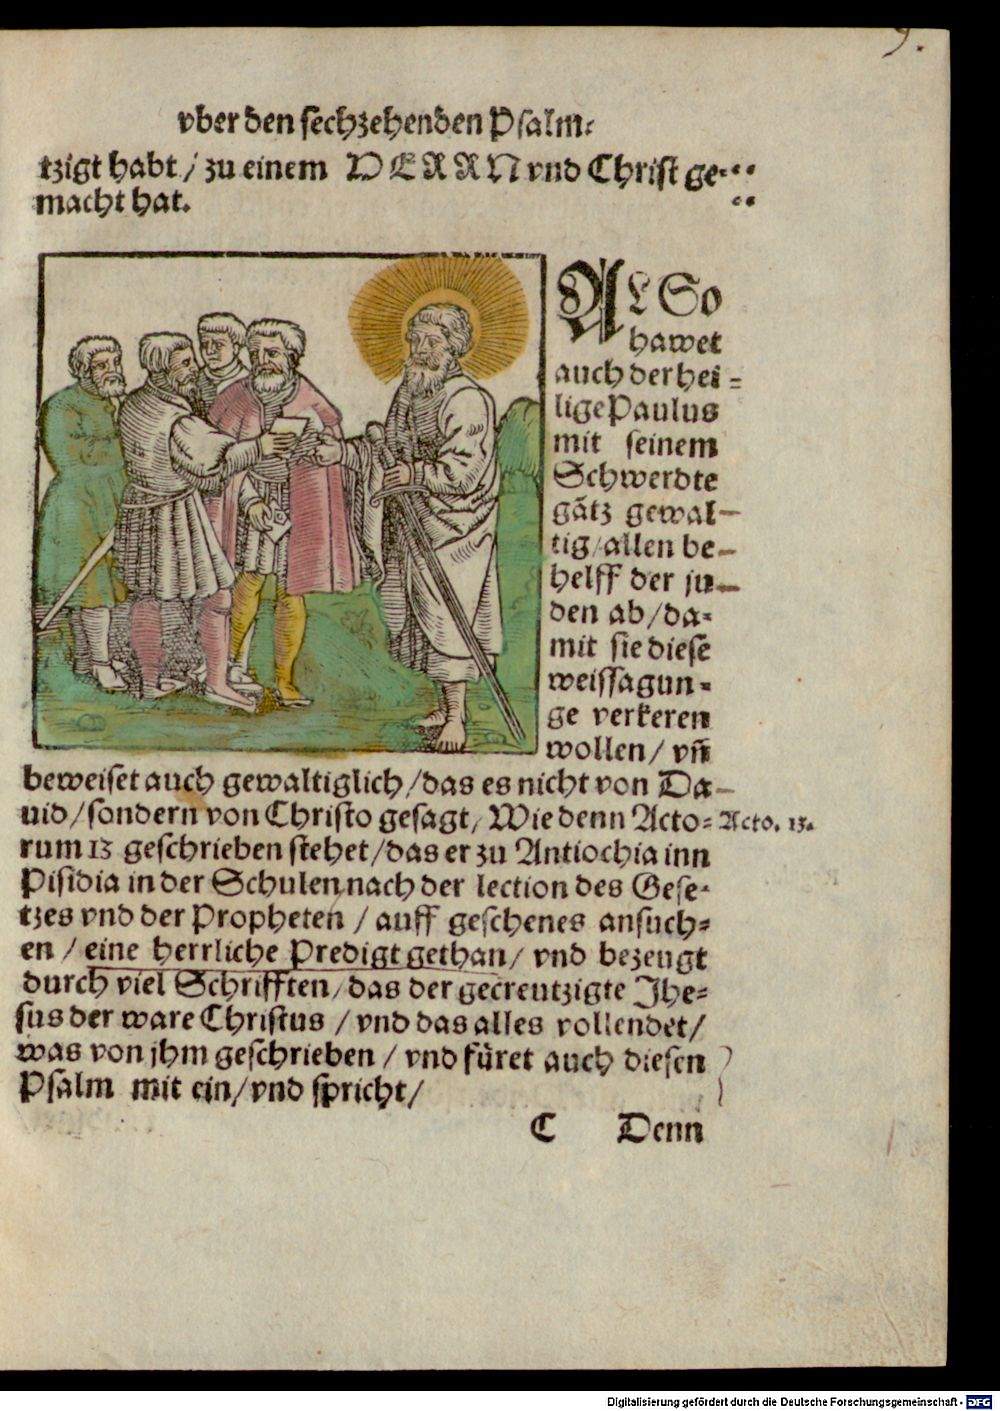 9.
vber den sechzehenden Psalm.
tzigt habt / zu einem HERRN vnd Christ ge-
macht hat.
ALSo
hawet
auch der hei-
lige Paulus
mit seinem
Schwerdte
gãtz gewal-
tig / allen be-
helff der ju-
den ab / da-
mit sie diese
weissagun-
ge verkeren
wollen / vñ
beweiset auch gewaltiglich / das es nicht von Da-
uid / sondern von Christo gesagt / Wie denn Acto-
Acto. 13.
rum 13 geschrieben stehet / das er zu Antiochia inn
Pisidia in der Schulen nach der lection des Gese-
tzes vnd der Propheten / auff geschenes ansuch-
en / eine herrliche Predigt gethan / vnd bezeugt
durch viel Schrifften / das der gecreutzigte Jhe-
sus der ware Christus / vnd das alles vollendet /
was von jhm geschrieben / vnd füret auch diesen
Psalm mit ein / vnd spricht /
C Denn
Digitalisierung gefördert durch die Deutsche Forschungsgemeinschaft - DFG